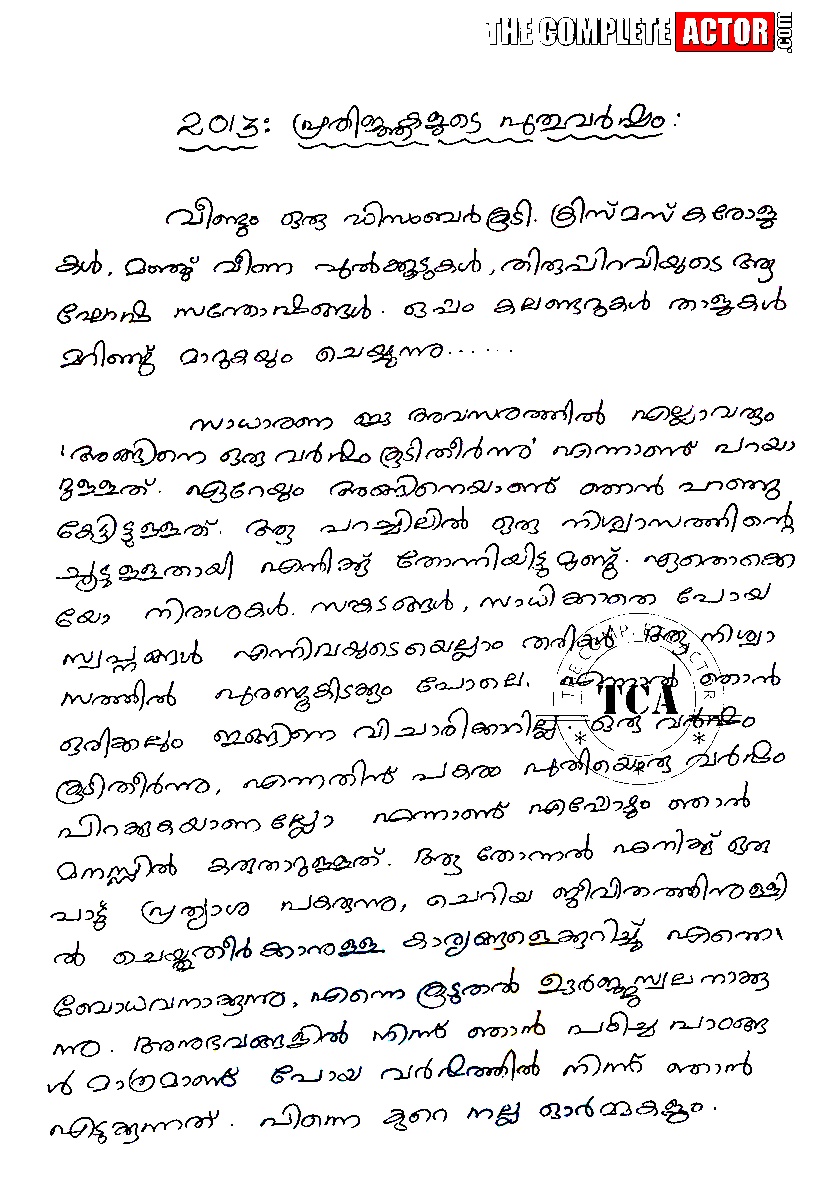 THE COMPLETE ACTOR .com
2013: പ്രതിജ്ഞകളുടെ പുതുവർഷം:
വീണ്ടും ഒരു ഡിസംബർകൂടി. ക്രിസ്മസ് കരോളു
കൾ, മഞ്ഞു് വീണ പുൽക്കൂടുകൾ, തിരുപ്പിറവിയുടെ ആ
ഘോഷ സന്തോഷങ്ങൾ. ഒപ്പം കലണ്ടറുകൾ താളുകൾ
മറിഞ്ഞു് മാറുകയും ചെയ്യുന്നു......
സാധാരണ ഈ അവസരത്തിൽ എല്ലാവരും
'അങ്ങിനെ ഒരു വർഷം കൂടിതീർന്നു' എന്നാണ് പറയാ
റുള്ളത്. ഏറേയും അങ്ങിനെയാണ് ഞാൻ പറഞ്ഞു
കേട്ടിട്ടുള്ളത്. ആ പറച്ചിലിൽ ഒരു നിശ്വാസത്തിന്റെ
ചൂടുള്ളതായി എനിക്കു് തോന്നിയിട്ടുമുണ്ടു്. ഏതൊക്കെ
യോ നിരാശകൾ. സങ്കടങ്ങൾ, സാധിക്കാതെ പോയ
സ്വപ്നങ്ങൾ എന്നിവയുടെയെല്ലാം തരികൾ ആ നിശ്വാ
സത്തിൽ പുരണ്ടുകിടക്കും പോലെ. എന്നാൽ ഞാൻ
ഒരിക്കലും ഇങ്ങിനെ വിചാരിക്കാറില്ല. ഒരു വർഷം
കൂടിതീർന്നു, എന്നതിന് പകരം പുതിയൊരു വർഷം
പിറക്കുകയാണല്ലോ എന്നാണ് എപ്പോഴും ഞാൻ
മനസ്സിൽ കരുതാറുള്ളത്. ആ തോന്നൽ എനിക്കു് ഒരു
പാട് പ്രത്യാശ പകരുന്നു, ചെറിയ ജീവിതത്തിനുള്ളി
ൽ ചെയ്തുതീർക്കാനുള്ള കാര്യങ്ങളെക്കുറിച്ച് എന്നെ
ബോധവനാക്കുന്നു, എന്നെ കൂടുതൽ ഊർജ്ജസ്വലനാക്കു
ന്നു. അനുഭവങ്ങളിൽ നിന്ന് ഞാൻ പഠിച്ച പാഠങ്ങ
ൾ മാത്രമാണ് പോയ വർഷത്തിൽ നിന്ന് ഞാൻ
എടുക്കുന്നത്. പിന്നെ കുറെ നല്ല ഓർമ്മകളും.
THE COMPLETE ACTOR
TCA